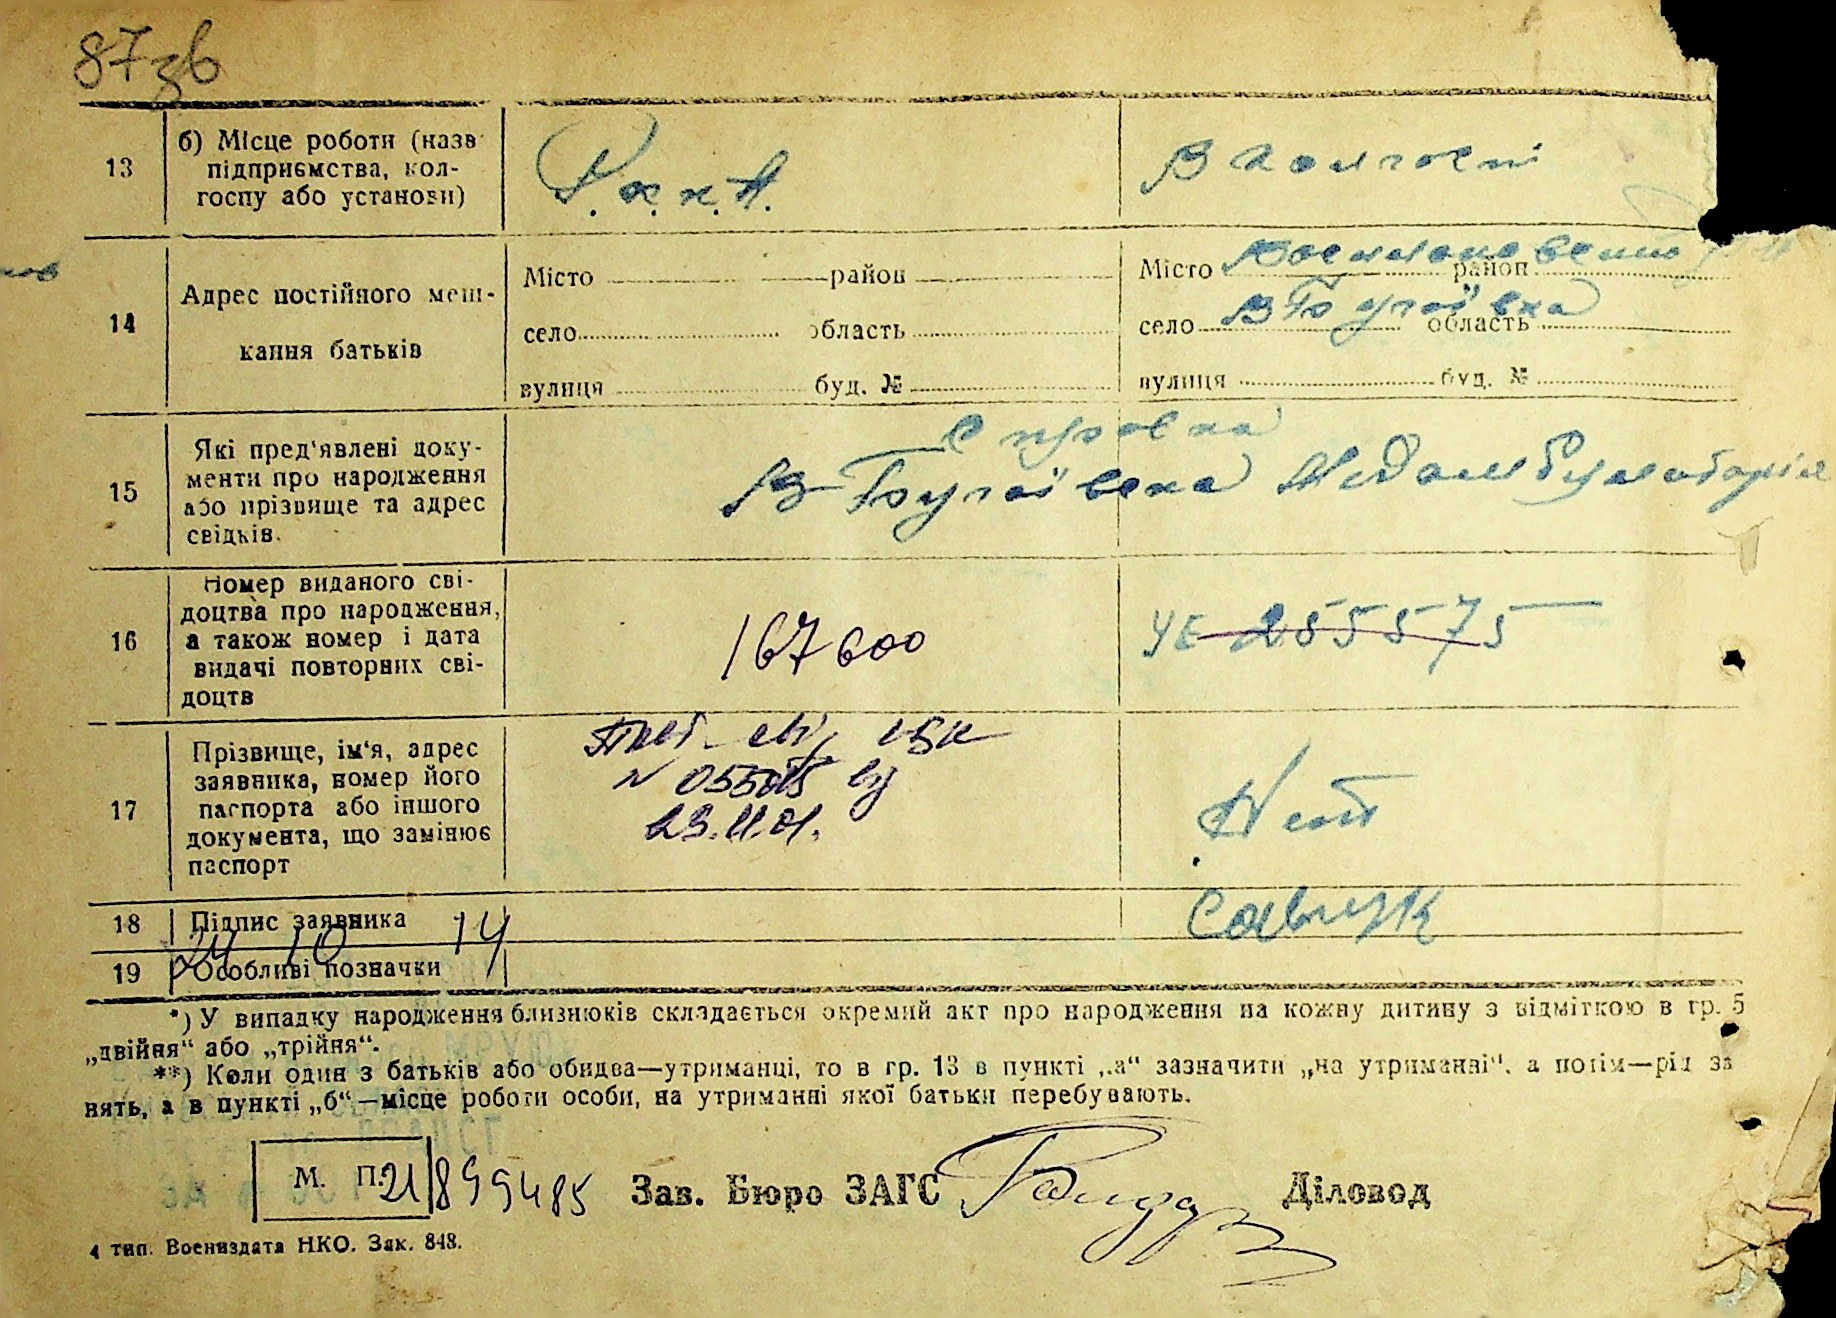 87зв
13 б) Місце роботи (назв підприємства, колгоспу або установи)
Р.к.к.А.
В колгоспі
14 Адрес постійного мешкання батьків
Місто район
село область
вулиця буд. №
Місто район
село В Бугаївка область
вулиця буд. №
15 Які пред'явлені документи про народження або прізвище та адрес свідків.
Справка
В-Бугаївска
16 Номер виданого свідоцтва про народження, а також номер і дата видачі повторних свідоцтв
167600
УЕ 255575
17 Прізвище, ім'я, адрес заявника, номер його паспорта або іншого документа, що замінює паспорт
23.11.01.
18 Підпис заявника
Савчук
24 10 14
19 Особливі позначки
*) У випадку народження близнюків складається окремий акт про народження на кожну дитину з відміткою в гр. 5
„двійня“ або „трійня“.
**) Коли один з батьків або обидва—утриманці, то в гр. 13 в пункті „а“ зазначити „на утриманні“, а потім—рід за
нять, а в пункті „б“—місце роботи особи, на утриманні якої батьки перебувають.
М. П. 21 899485 Зав. Бюро ЗАГС Діловод
4 тип. Воениздата НКО. Зак. 848.